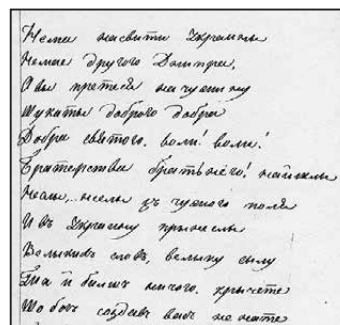 Нема на свити Украины
Немае другого Днипра,
А вы претеся на чужину
Шукаты доброго добра
Добра святого. воли! воли!
Братерства братьнёго! найшлы
Неслы, неслы зъ чужого поля
И въ Украину прынеслы
Велыкихъ словъ, велыку сылу
Та й билшъ ничого. крычете
Що богъ создавъ васъ не на те